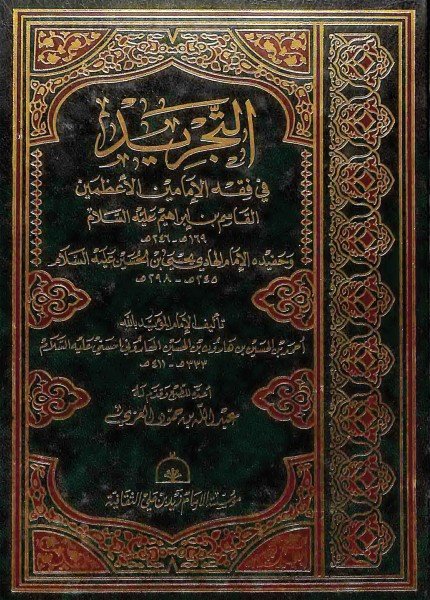 التجريد
في فقه الإمامين الأعظمين
القاسم بن إبراهيم عليه السلام
١٦٩هـ - ٢٤٦هـ
وحفيده الإمام الهادي يحيى بن الحسين عليه السلام
٢٤٥هـ - ٢٩٨هـ
تأليف الإمام المؤيد بالله
أحمد بن الحسين بن هارون بن الحسين الهاروني الحسني عليه السلام
٣٣٣هـ - ٤١١هـ
عبد الله بن حمود العزي
مؤسسة الإمام زيد بن علي الثقافية